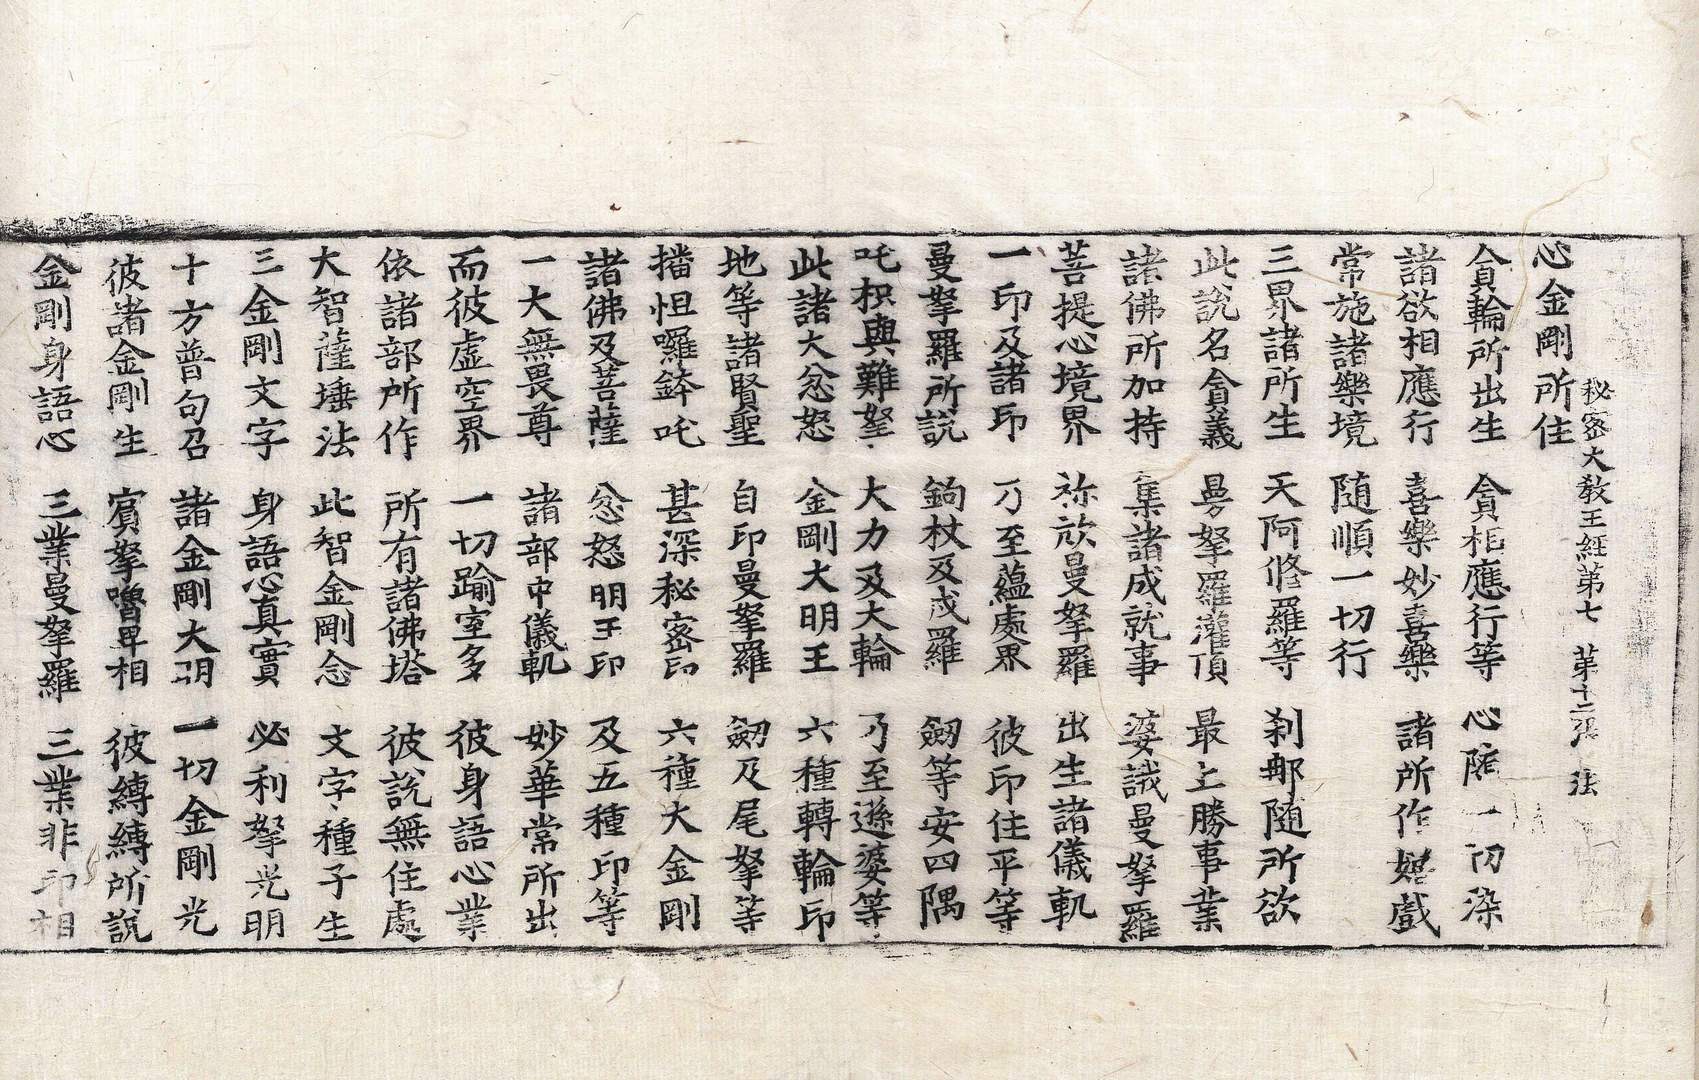 秘密大教王經第七　第十二張　法
心金剛所住
貪輪所出生　貪相應行等　心隨一切染
諸欲相應行　喜樂妙喜樂　諸所作嬉戲
常施諸樂境　隨順一切行
三界諸所生　天阿脩羅等　刹那隨所欲
此說名貪義　曼拏羅灌頂　最上勝事業
諸佛所加持　集諸成就事　婆誐曼拏羅
菩提心境界　祢㰦曼拏羅　出生諸儀軌
一印及諸印　乃至蘊處界　彼印住平等
曼拏羅所說　鉤杖及戍羅　劒等安四隅
吒枳與難拏　大力及大輪　乃至遜婆等
此諸大忿怒　金剛大明王　六種轉輪印
地等諸賢聖　自印曼拏羅　劒及尾拏等
播怛囉鉢吒　甚深秘密印　六種大金剛
諸佛及菩薩　忿怒明王印　及五種印等
一大無畏尊　諸部中儀軌　妙華常所出
而彼虛空界　一切踰室多　彼身語心業
依諸部所作　所有諸佛塔　彼說無住處
大智薩埵法　此智金剛念　文字種子生
三金剛文字　身語心真實　必利拏光明
十方普句召　諸金剛大明　一切金剛光
彼諸金剛生　賓拏嚕畢相　彼縛縛所說
金剛身語心　三業曼拏羅　三業非印相